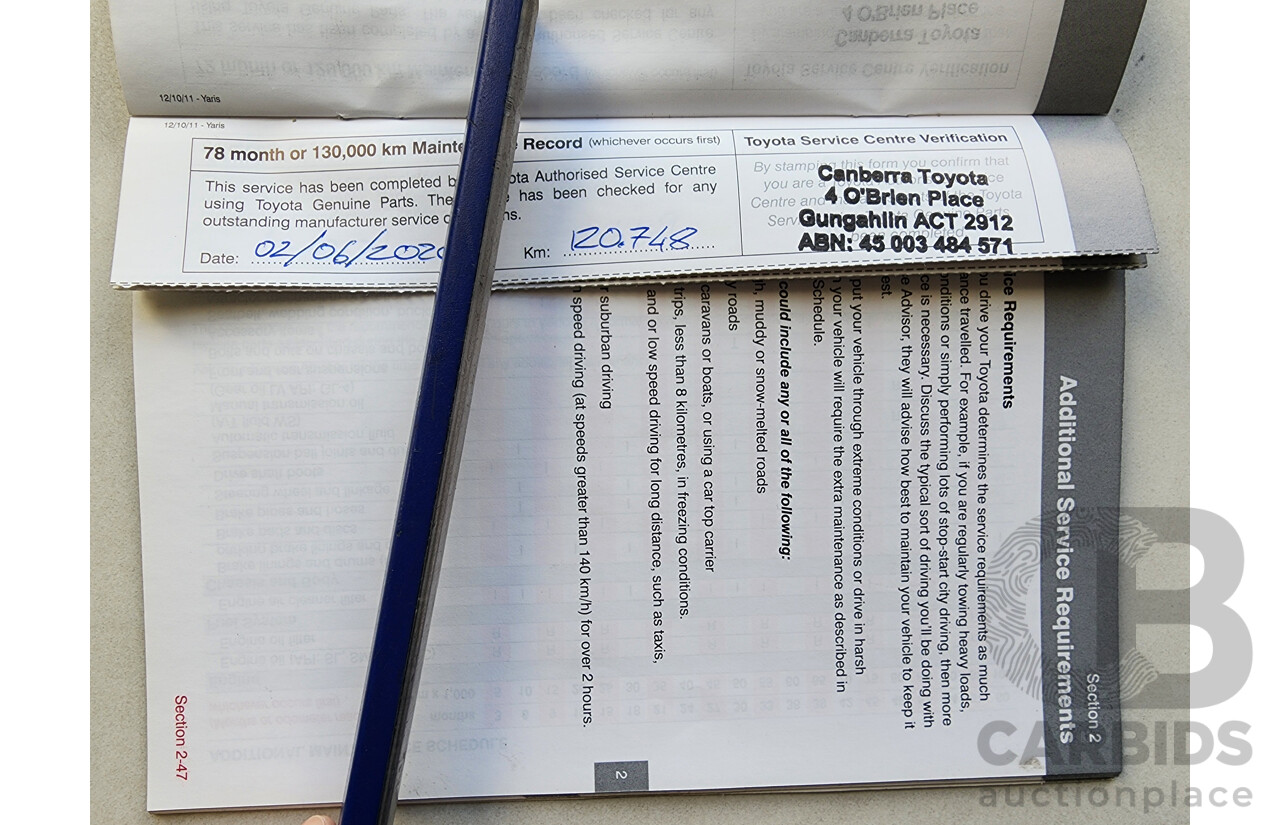 12/10/11 - Yaris
12/10/11 - Yaris
78 month or 130,000 km Mainte Record (whichever occurs first)
This service has been completed b ota Authorised Service Centre
using Toyota Genuine Parts. The has been checked for any
outstanding manufacturer service c ns.
Date: 02/06/2020 Km: 120.748
Toyota Service Centre Verification
By stamping this form you confirm that
you are a
Centre and Toyota
Canberra Toyota
4 O'Brien Place
Gungahlin ACT 2912
ABN: 45 003 484 571
Section 2
Additional Service Requirements
ce Requirements
ou drive your Toyota determines the service requirements as much
ance travelled. For example, if you are regularly towing heavy loads,
onditions or simply performing lots of stop-start city driving, then more
ce is necessary. Discuss the typical sort of driving you'll be doing with
e Advisor, they will advise how best to maintain your vehicle to keep it
est.
put your vehicle through extreme conditions or drive in harsh
your vehicle will require the extra maintenance as described in
Schedule.
could include any or all of the following:
h, muddy or snow-melted roads
y roads
caravans or boats, or using a car top carrier
trips, less than 8 kilometres, in freezing conditions.
and or low speed driving for long distance, such as taxis,
r suburban driving
speed driving (at speeds greater than 140 km/h) for over 2 hours.
2
Section 2-47
CARBIDS
auctionplace